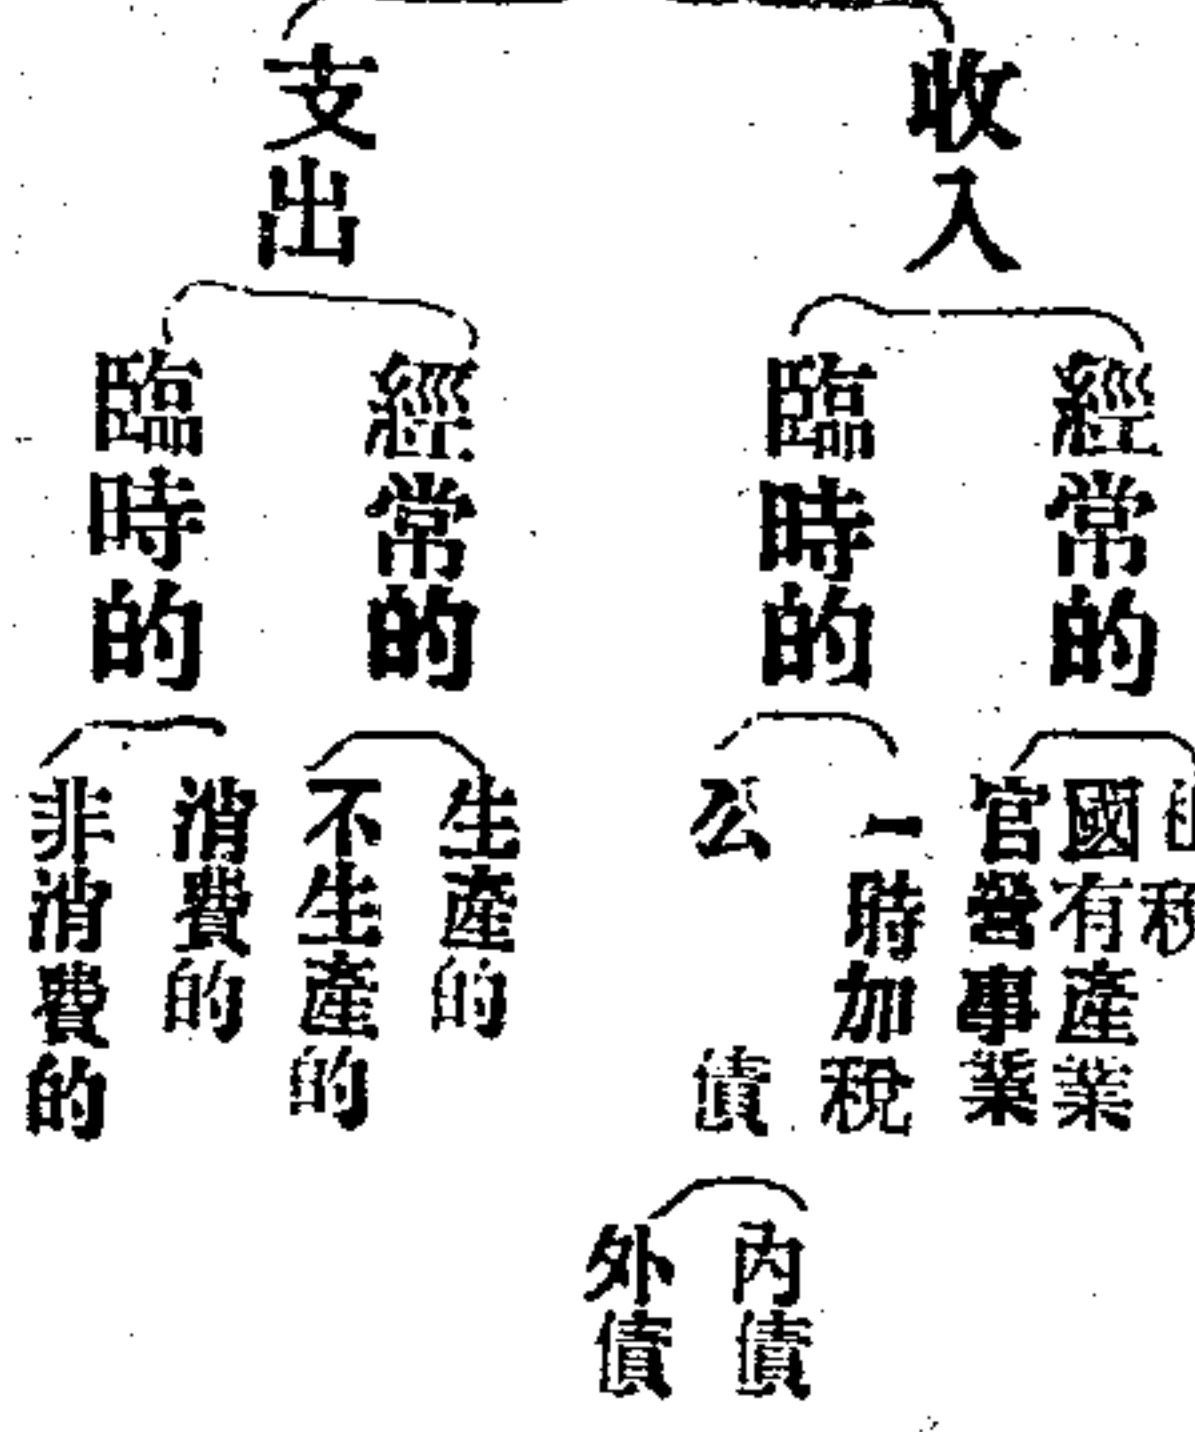 收入
經常的
稅
國有產業
官營事業
臨時的
一時加稅
公債
內債
外債
支出
經常的
生產的
不生產的
臨時的
消費的
非消費的